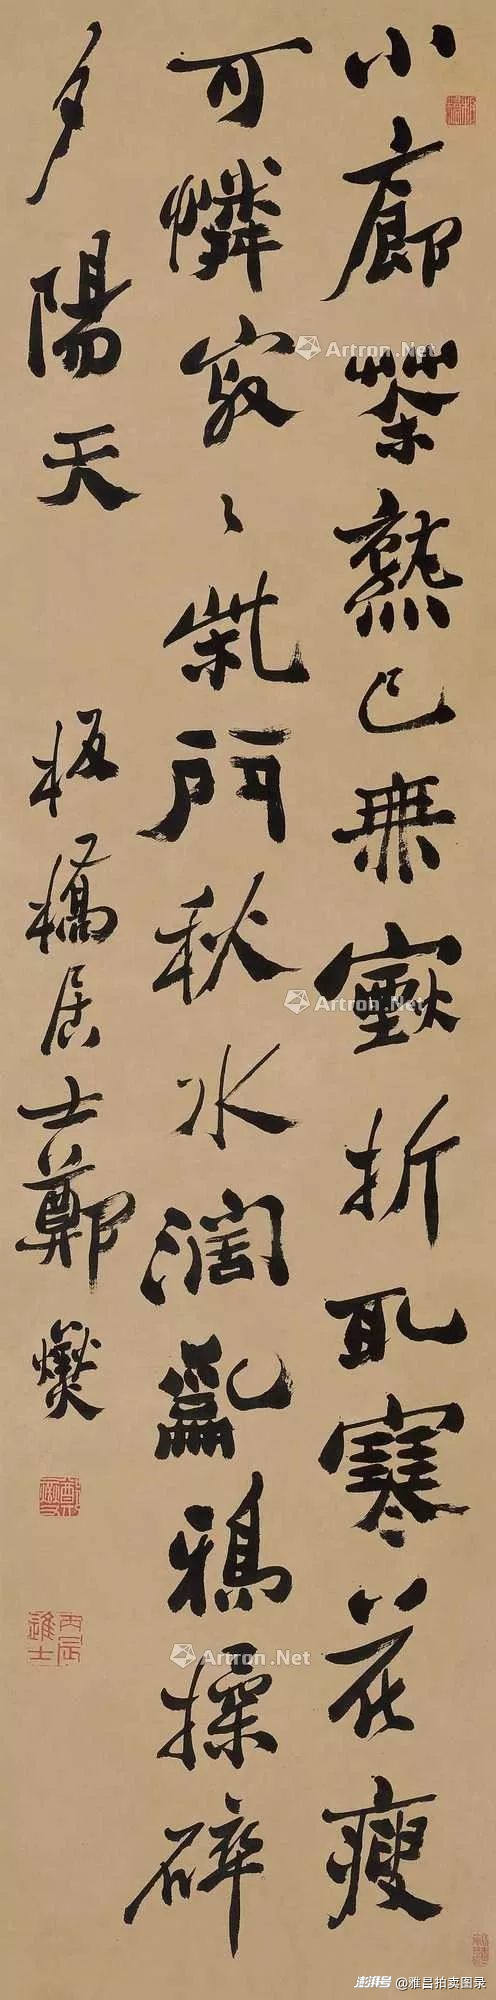 小廊茶熟已無煙折取寒花瘦
可憐寂〻柴門秋水闊亂鴉揉碎
夕陽天
板橋居士鄭燮
丙辰進士
Artron.Net
Artron.Net
Artron.Net
澎湃号@雅昌拍卖图录